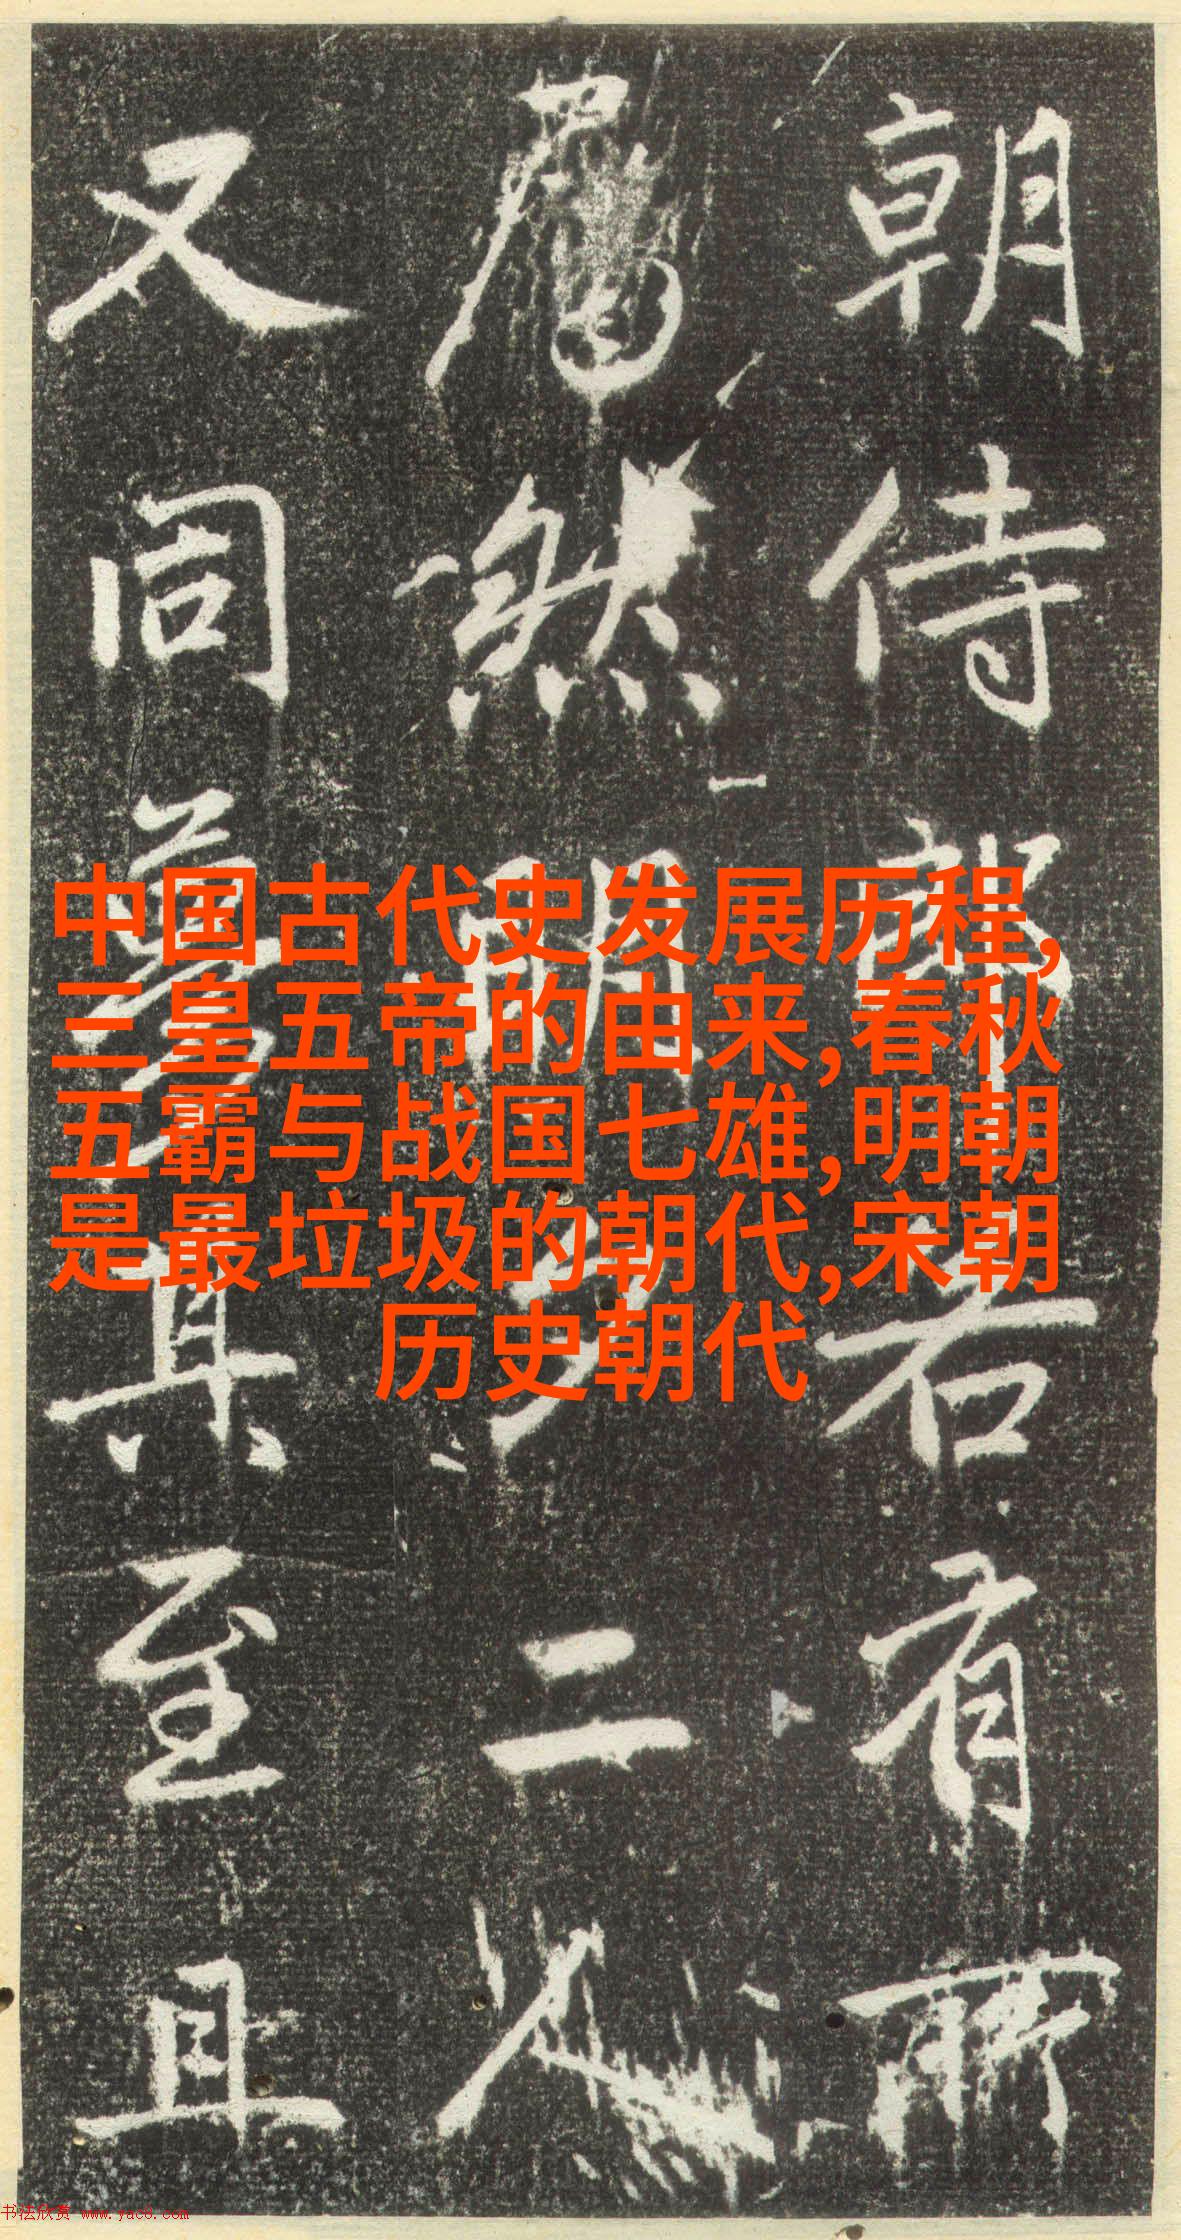 朝侍郎若有所
然明二人
又同其至且
中国古代史发展历程,
三皇五帝的由来,春秋
五霸与战国七雄,明朝
是最垃圾的朝代,宋朝
历史朝代
书法欣赏 www.yac8.com